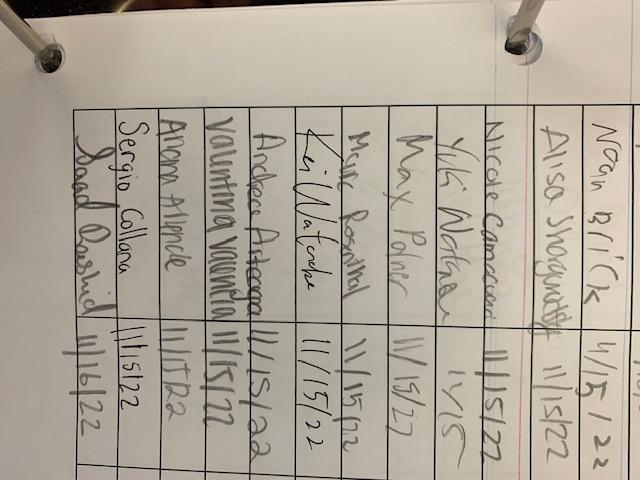 Noan Brick 11/15/22
Alisa 11/15/22
Nicole 11/15/22
Yuki 11/15
Max Polner 11/15/22
Marc Rosenthal 11/15/22
Kei Watanabe 11/15/22
Andrea Arteaga 11/15/22
Valentina Valencia 11/15/22
Allende 11/15/22
Sergio Collana 11/15/22
Saad Rashid 11/16/22